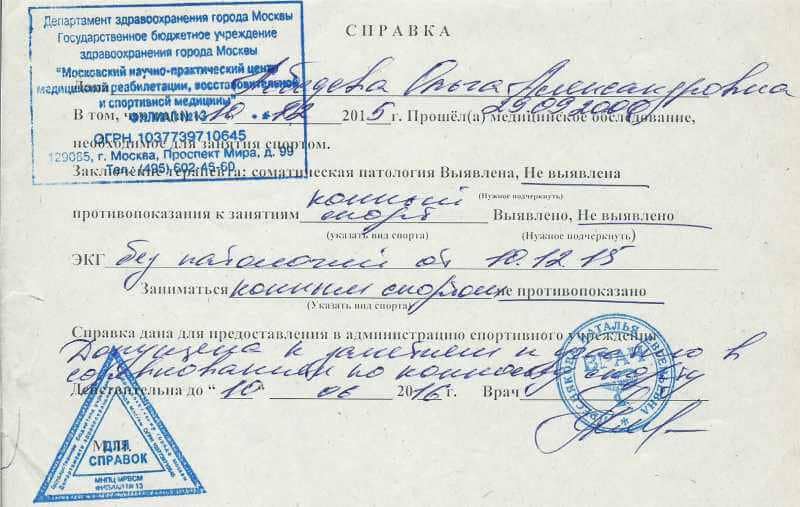 Департамент здравоохранения города Москвы
Государственное бюджетное учреждение
здравоохранения города Москвы
"Московский научно-практический центр
медицинской реабилитации, восстановительной
и спортивной медицины"
ФИЛИАЛ №13
ОГРН 1037739710645
129085, г. Москва, Проспект Мира, д. 99
Тел. (495) 602-45-60
СПРАВКА
Дана Ольга Александровна
29.09.2000
В том, что 10 12 2015 г. Прошёл(а) медицинское обследование,
необходимое для занятия спортом.
Заключение терапевта: соматическая патология Выявлена, Не выявлена
(Нужное подчеркнуть)
противопоказания к занятиям конный спорт Выявлено, Не выявлено
(указать вид спорта) (Нужное подчеркнуть)
ЭКГ без патологии от 10.12.15
Заниматься конным спортом не противопоказано
(Указать вид спорта)
Справка дана для предоставления в администрацию спортивного учреждения
Допущена к занятиям и участию в
соревнованиях по конному спорту
Действительна до "10" 06 2016 г. Врач
М.П.
ДЛЯ
СПРАВОК
МНПЦ МРВСМ
ФИЛИАЛ №13
НАТАЛЬЯ
ВРАЧ